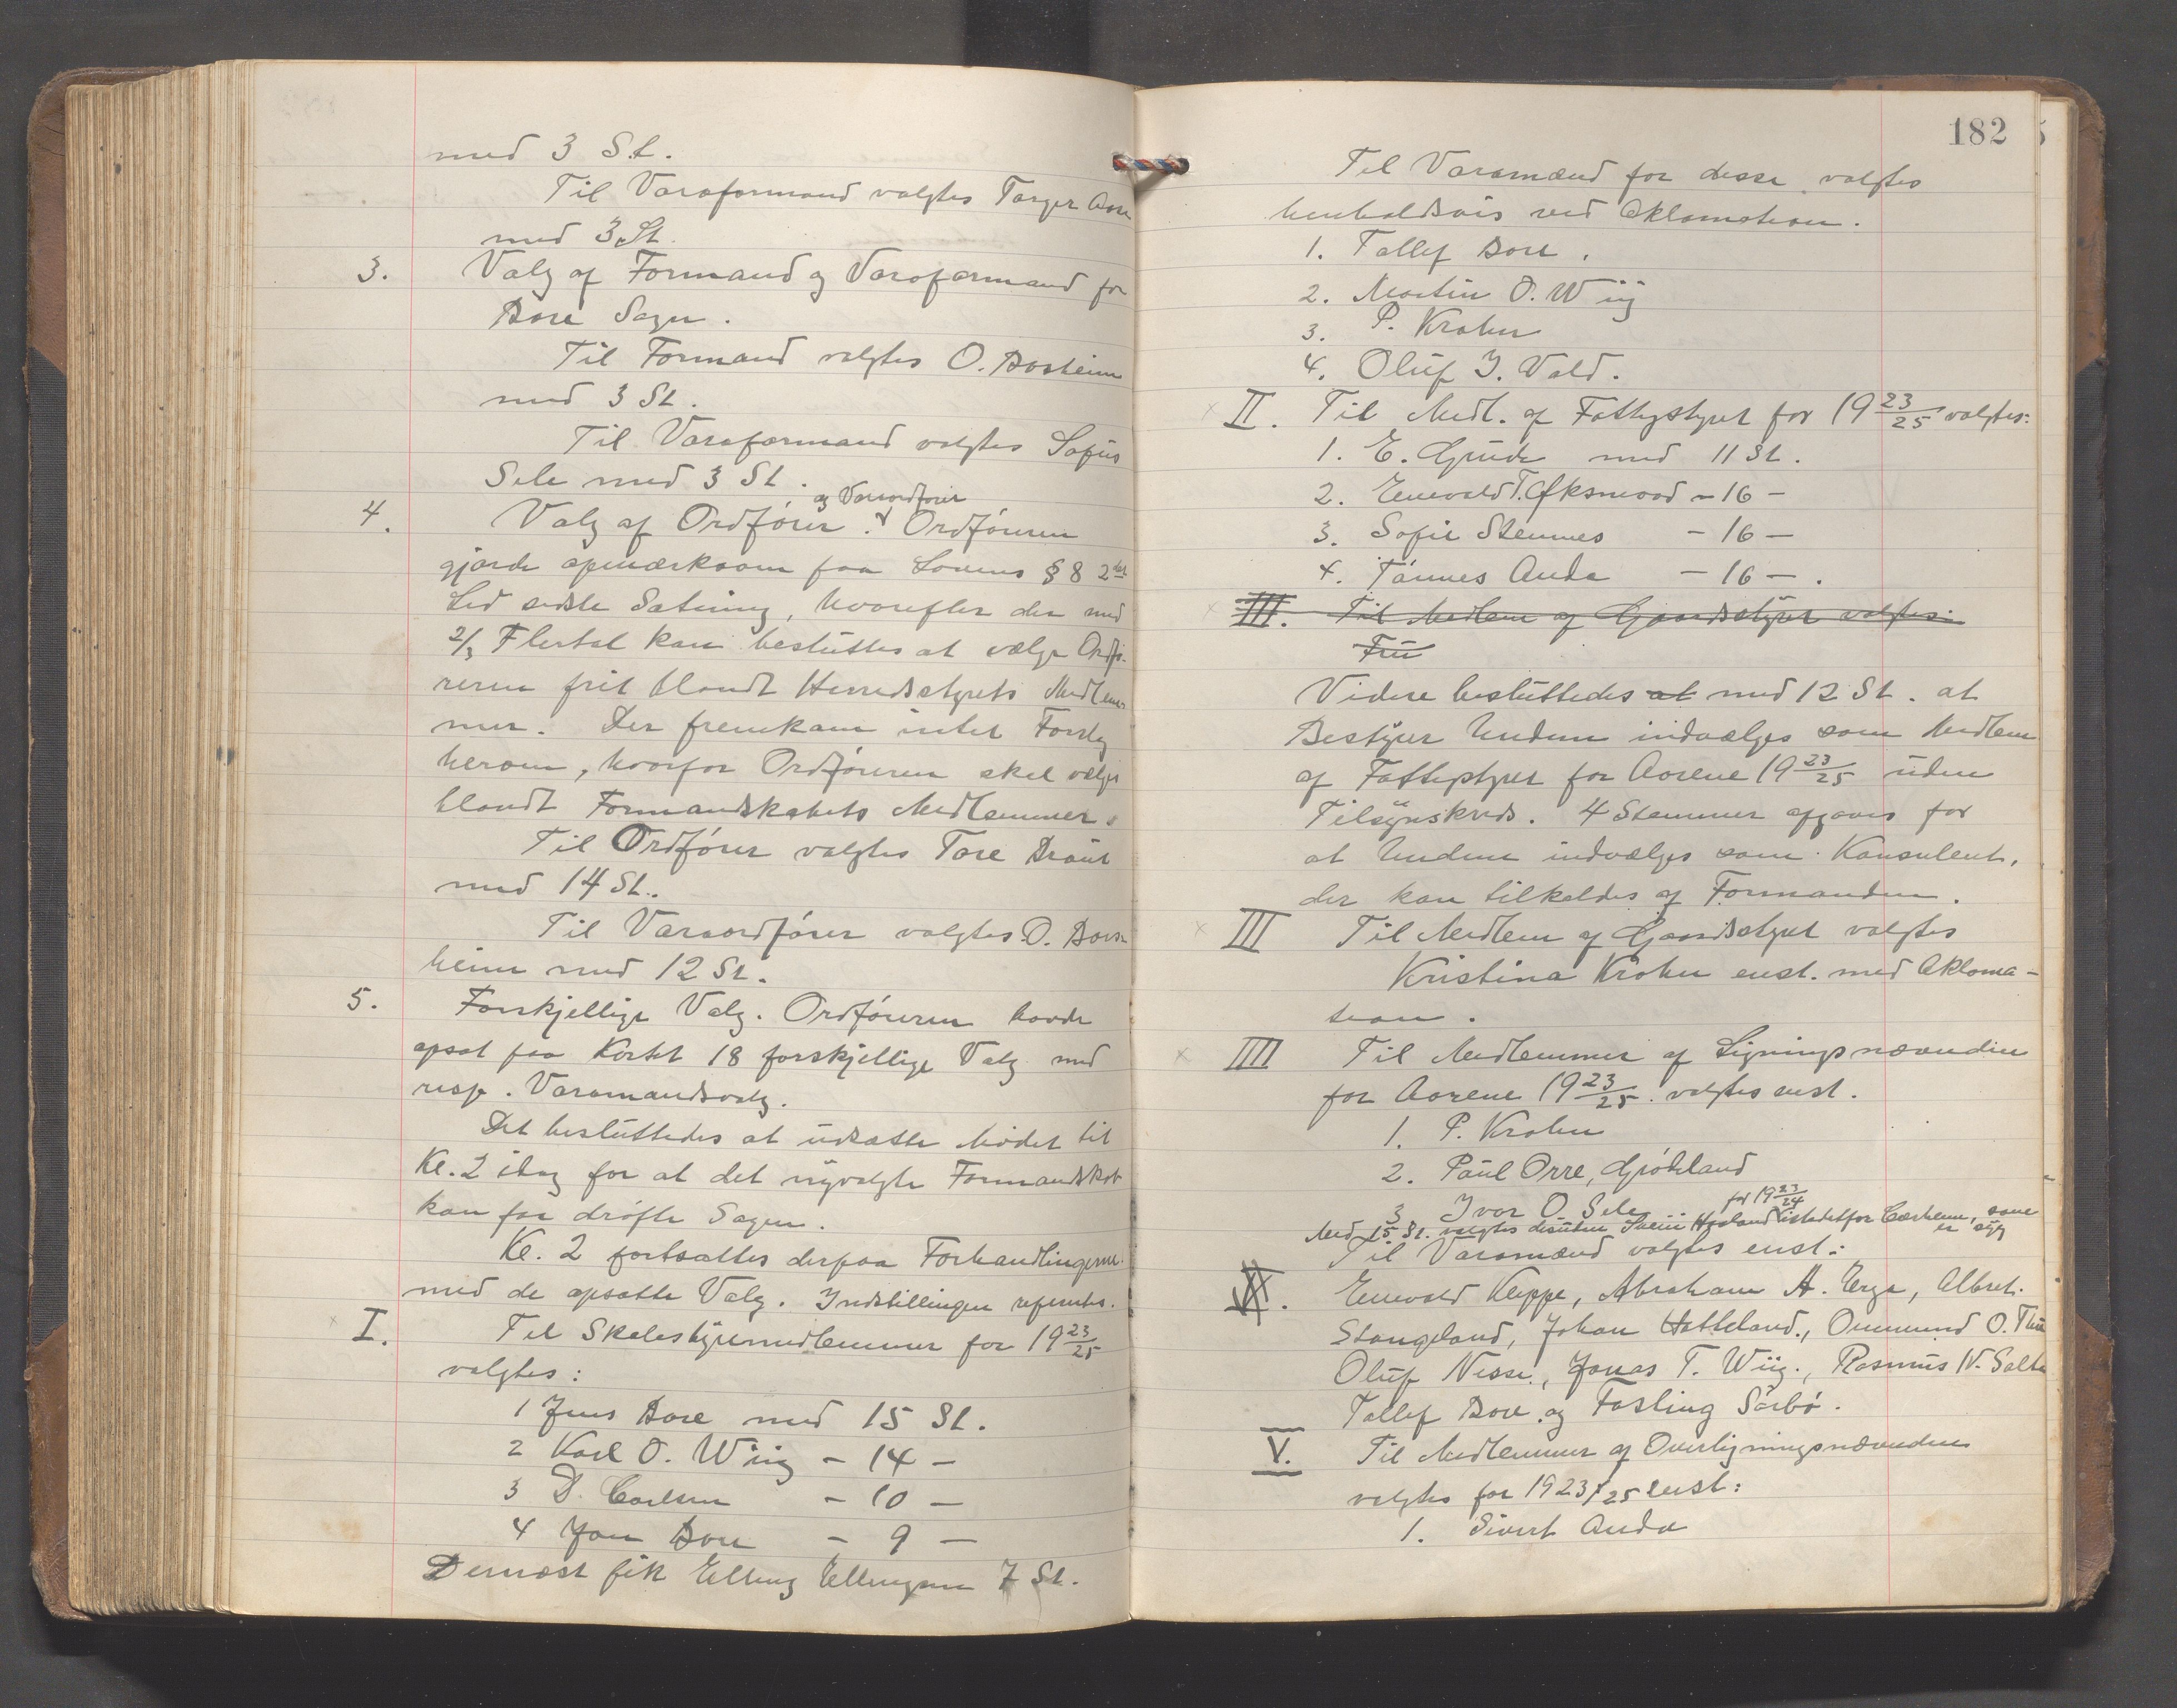 med 3 St.
Til Varaformand valgtes Torger Bore
med 3 St.
3. Valg af Formand og Varaformand for
Bore Sogn.
Til Formand valgtes O. Borsheim
med 3 St.
Til Varaformand valgtes Sofus
Sele med 3 St.
og Varaordfører
4. Valg af Ordfører. Ordføreren
gjorde opmærksom paa Lovens § 8 2det
Led sidste Sætning, hvorefter der med
2/3 Flertal kan besluttes at vælge Ordfø-
reren frit blandt Herredsstyrets Medlem
mer. Der fremkam intet Forslag
herom, hvorfor Ordføreren skal vælges
blandt Formandskabets Medlemmer.
Til Ordfører valgtes Tore Braut
med 14 St.
Til Varaordfører valgtes O. Bors-
heim med 12 St.
5. Forskjellige Valg. Ordføreren havde
opsat paa Kortet 18 forskjellige Valg med
resp. Varamandsvalg.
Det besluttedes at udsætte Mødet til
Kl. 2 idag for at det nyvalgte Formandskab
kan faa drøfte Sagen.
Kl. 2 fortsattes derpaa Forhandlingerne
med de opsatte Valg. Indstillingen refereres.
I. Til Skolestyremedlemmer for 19 23/25
valgtes:
1 Jens Bore med 15 St.
2 Karl O. Wiig - 14 -
3 D. Carlsen - 10 -
4 Jon Bore - 9 -
Dernæst fik Elling Ellingsen 7 St.
182
Til Varamænd for disse valgtes
henholdsvis ved Aklamation.
1. Tollef Bore.
2. Martin O. Wiig
3. P. Krohn
4. Oluf J. Vold.
II. Til Medl. af Fattigstyret for 19 23/25 valgtes:
1. E. Grude med 11 St.
2. Enevald T. Øksnevad - 16 -
3. Sofie Stennes - 16 -
4. Tønnes Anda - 16 -.
III. Til Medlem af Gaardsstyret valgtes:
Fru
Videre besluttedes at med 12 St. at
Bestyrer Undem indvælges som Medlem
af Fattigstyret for Aarene 19 23/25 uden
Tilsynskreds. 4 Stemmer afgaves for
at Undem indvælges som Konsulent,
der kan tilkaldes af Formanden.
III Til Medlem af Gaardsstyret valgtes
Kristina Krohn enst. med Aklama-
tion.
IIII Til Medlemmer af Ligningsnævndin
for Aarene 19 23/25 valgtes enst.
1. P. Krohn
2. Paul Orre, Grødeland
3 Ivar O. Sele
for 19 23/24
Med 15 St. valgtes desuten Svein Hogland istedetfor Carlsen, som
er syg
Til Varamænd valgtes enst.:
Enevald Kleppe, Abraham A. Erga, Albret
Stangeland, Johan Hatteland., Ommund O. Thu
Oluf Nesse., Jonas T. Wiig., Rasmus N. Salte
Tollef Bore og Tosling Sørbø.
V. Til Medlemmer af Overligningsnævnden
valgtes for 1923/25 enst:
1. Sivert Anda